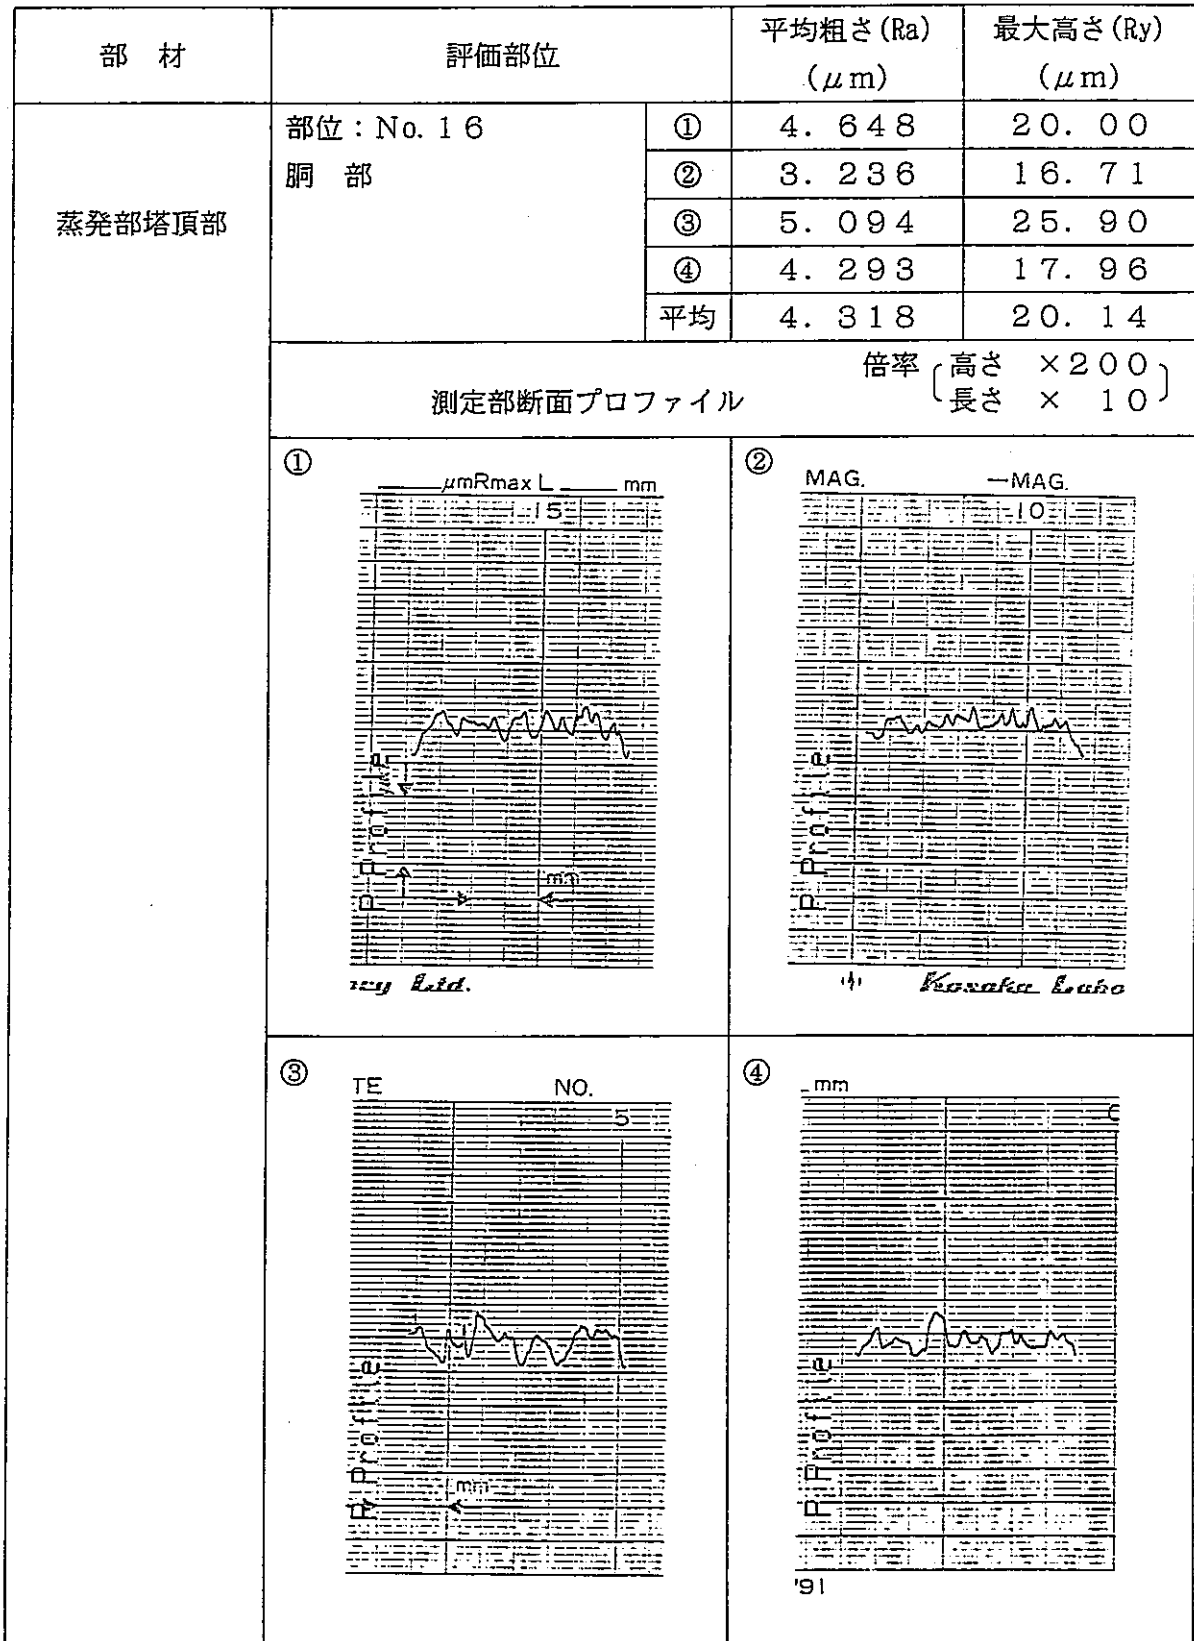 部 材 評価部位 平均粗さ(Ra) 最大高さ(Ry)
(μm) (μm)
部位：No. 16 ① 4. 648 20. 00
胴 部 ② 3. 236 16. 71
蒸発部塔頂部 ③ 5. 094 25. 90
④ 4. 293 17. 96
平均 4. 318 20. 14
測定部断面プロファイル 倍率 高さ ×200
長さ × 10
①
μmRmax L mm
15
P Profile
mm
Ltd.
②
MAG. —MAG.
10
P Profile
Kosaka Labo
③
TE NO.
5
Profile
mm
④
mm
P Profile
'91